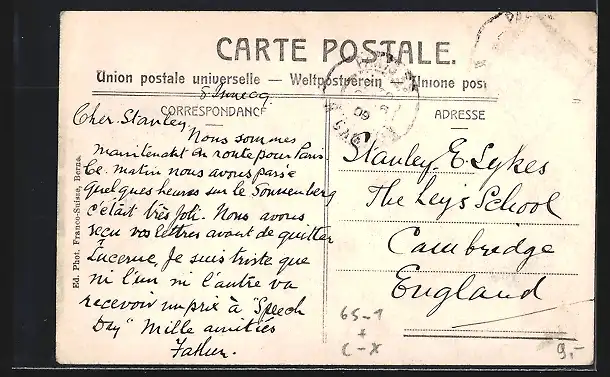 CARTE POSTALE.
Union postale universelle — Weltpostverein — Unione post
CORRESPONDANCE
ADRESSE
Cher Stanley
Nous sommes
maintenant en route pour Paris
Ce matin nous avons passé
quelques heures sur le Sonnenberg
c'était très joli. Nous avons
reçu vos lettres avant de quitter
Lucerne. Je suis triste que
ni l'un ni l'autre va
recevoir un prix à "Speech
Day" Mille amitiés
Father.
Stanley E. Sykes
The Leys School
Cambridge
England
Ed. Phot. Franco-Suisse, Berne.
65-1
+
C-X
9.-